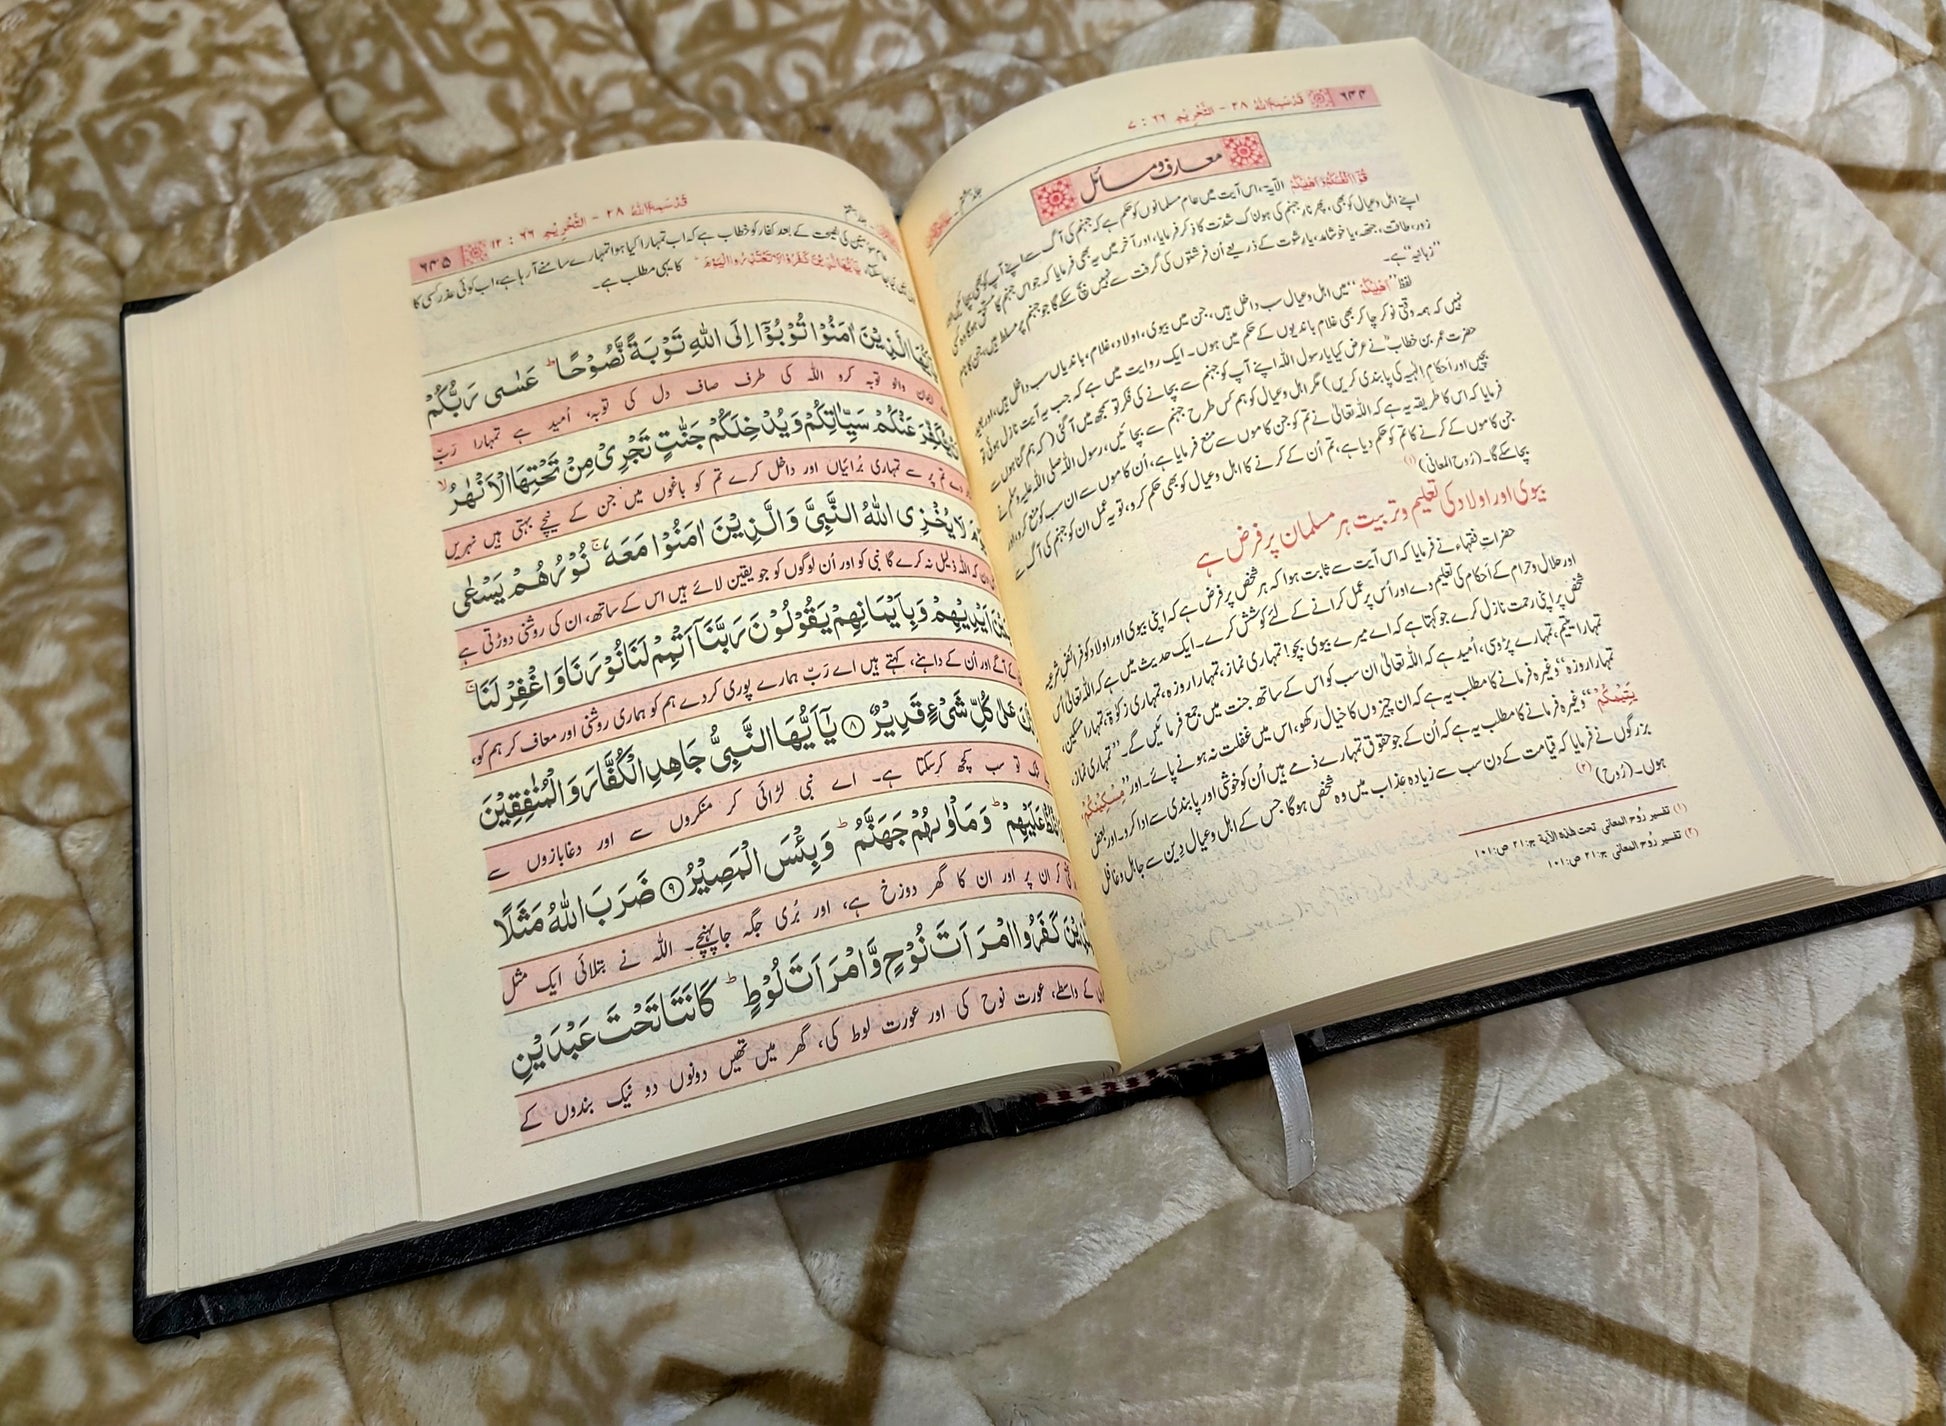 ۶۴۴ قَدْ سَمِعَ اللهُ ۲۸ - اَلتَّحْرِيْم ۶۶ : ۷
معارف ومسائل
قُوْٓا اَنْفُسَكُمْ وَاَهْلِيْكُمْ الآیۃ، اس آیت میں عام مسلمانوں کو حکم ہے کہ جہنم کی آگ سے اپنے آپ کو بھی بچائیں اور
اپنے اہل و عیال کو بھی، پھر نارِ جہنم کی ہولناک شدّت کا ذکر فرمایا، اور آخر میں یہ بھی فرمایا کہ جو اس جہنم کا مستحق ہوگا وہ کسی
زور، طاقت، جتھہ، یا خوشامد، یا رشوت کے ذریعے اُن فرشتوں کی گرفت سے نہیں بچ سکے گا جو جہنم پر مسلط ہیں، جن کا نام
”زبانیہ“ ہے۔
لفظ ”اَهْلِيْكُمْ“ میں اہل و عیال سب داخل ہیں، جن میں بیوی، اولاد، غلام، باندیاں سب داخل ہیں، اور بعید
نہیں کہ ہمہ وقتی نوکر چاکر بھی غلام باندیوں کے حکم میں ہوں۔ ایک روایت میں ہے کہ جب یہ آیت نازل ہوئی تو
حضرت عمر بن خطابؓ نے عرض کیا یا رسول اللہ اپنے آپ کو جہنم سے بچانے کی فکر تو سمجھ میں آگئی (کہ ہم گناہوں سے
بچیں اور احکامِ الٰہیہ کی پابندی کریں) مگر اہل و عیال کو ہم کس طرح جہنم سے بچائیں، رسول اللہ صلی اللہ علیہ وسلم نے
فرمایا کہ اس کا طریقہ یہ ہے کہ اللہ تعالیٰ نے تم کو جن کاموں سے منع فرمایا ہے، اُن کاموں سے ان سب کو منع کرو، اور
جن کاموں کے کرنے کا تم کو حکم دیا ہے، تم اُن کے کرنے کا اہل و عیال کو بھی حکم کرو، تو یہ عمل ان کو جہنم کی آگ سے
بچا سکے گا۔ (رُوح المعانی) (۱)
بیوی اور اولاد کی تعلیم و تربیت ہر مسلمان پر فرض ہے
حضراتِ فقہاء نے فرمایا کہ اس آیت سے ثابت ہوا کہ ہر شخص پر فرض ہے کہ اپنی بیوی اور اولاد کو فرائضِ شرعیہ
اور حلال و حرام کے اَحکام کی تعلیم دے اور اُس پر عمل کرانے کے لئے کوشش کرے۔ ایک حدیث میں ہے کہ اللہ تعالیٰ اُس
شخص پر اپنی رحمت نازل کرے جو کہتا ہے کہ اے میرے بیوی بچو! تمہاری نماز، تمہارا روزہ، تمہاری زکوٰۃ، تمہارا مسکین،
تمہارا یتیم، تمہارے پڑوسی، اُمید ہے کہ اللہ تعالیٰ ان سب کو اس کے ساتھ جنت میں جمع فرمائیں گے۔ ”تمہاری نماز،
تمہارا روزہ“ وغیرہ فرمانے کا مطلب یہ ہے کہ ان چیزوں کا خیال رکھو، اس میں غفلت نہ ہونے پائے۔ اور ”مِسْكِيْنَكُمْ،
يَتِيْمَكُمْ“ وغیرہ فرمانے کا مطلب یہ ہے کہ اُن کے جو حقوق تمہارے ذمے ہیں اُن کو خوشی اور پابندی سے ادا کرو۔ اور بعض
بزرگوں نے فرمایا کہ قیامت کے دن سب سے زیادہ عذاب میں وہ شخص ہوگا جس کے اہل و عیال دِین سے جاہل و غافل
ہوں۔ (رُوح) (۲)
(۱) تفسیر رُوح المعانی تحت هٰذه الآیة ج:۲۱ ص:۱۰۱
(۲) تفسیر رُوح المعانی ج:۲۱ ص:۱۰۱
قَدْ سَمِعَ اللهُ ۲۸ - اَلتَّحْرِيْم ۶۶ : ۱۲ ۶۴۵
کی نصیحت کے بعد کفار کو خطاب ہے کہ اب تمہارا کیا ہوا تمہارے سامنے آرہا ہے، اب کوئی عذر کسی کا
يٰٓاَيُّهَا الَّذِيْنَ كَفَرُوْا لَا تَعْتَذِرُوا الْيَوْمَ کا یہی مطلب ہے۔
يٰٓاَيُّهَا الَّذِيْنَ اٰمَنُوْا تُوْبُوْٓا اِلَى اللهِ تَوْبَةً نَّصُوْحًا ؕ عَسٰى رَبُّكُمْ
ایمان والو توبہ کرو اللہ کی طرف صاف دل کی توبہ، اُمید ہے تمہارا رَبّ
يُّكَفِّرَ عَنْكُمْ سَيِّاٰتِكُمْ وَيُدْخِلَكُمْ جَنّٰتٍ تَجْرِيْ مِنْ تَحْتِهَا الْاَنْهٰرُ ۙ
دے تم پر سے تمہاری بُرائیاں اور داخل کرے تم کو باغوں میں جن کے نیچے بہتی ہیں نہریں
لَا يُخْزِي اللهُ النَّبِيَّ وَالَّذِيْنَ اٰمَنُوْا مَعَهٗ ۚ نُوْرُهُمْ يَسْعٰى
کہ اللہ ذلیل نہ کرے گا نبی کو اور اُن لوگوں کو جو یقین لائے ہیں اس کے ساتھ، ان کی روشنی دوڑتی ہے
اَيْدِيْهِمْ وَبِاَيْمَانِهِمْ يَقُوْلُوْنَ رَبَّنَآ اَتْمِمْ لَنَا نُوْرَنَا وَاغْفِرْ لَنَا ۚ
کے آگے اور اُن کے داہنے، کہتے ہیں اے رَبّ ہمارے پوری کردے ہم کو ہماری روشنی اور معاف کر ہم کو،
عَلٰى كُلِّ شَيْءٍ قَدِيْرٌ ﴿۸﴾ يٰٓاَيُّهَا النَّبِيُّ جَاهِدِ الْكُفَّارَ وَالْمُنٰفِقِيْنَ
تو سب کچھ کرسکتا ہے۔ اے نبی لڑائی کر منکروں سے اور دغابازوں سے
عَلَيْهِمْ ؕ وَمَاْوٰىهُمْ جَهَنَّمُ ؕ وَبِئْسَ الْمَصِيْرُ ﴿۹﴾ ضَرَبَ اللهُ مَثَلًا
کر ان پر اور ان کا گھر دوزخ ہے، اور بُری جگہ جاپہنچے۔ اللہ نے بتلائی ایک مثل
كَفَرُوا امْرَاَتَ نُوْحٍ وَّامْرَاَتَ لُوْطٍ ؕ كَانَتَا تَحْتَ عَبْدَيْنِ
کے واسطے، عورت نوح کی اور عورت لوط کی، گھر میں تھیں دونوں دو نیک بندوں کے